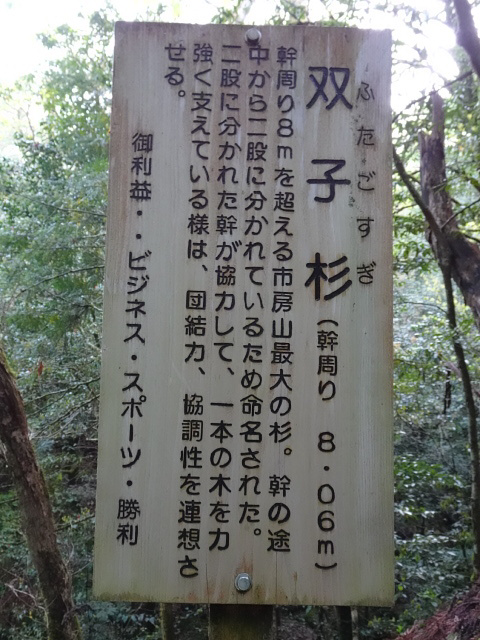 ふたごすぎ
双子杉(幹周り 8・06m)
幹周り8mを超える市房山最大の杉。幹の途
中から二股に分かれているため命名された。
二股に分かれた幹が協力して、一本の木を力
強く支えている様は、団結力、協調性を連想さ
せる。
御利益・・ビジネス・スポーツ・勝利